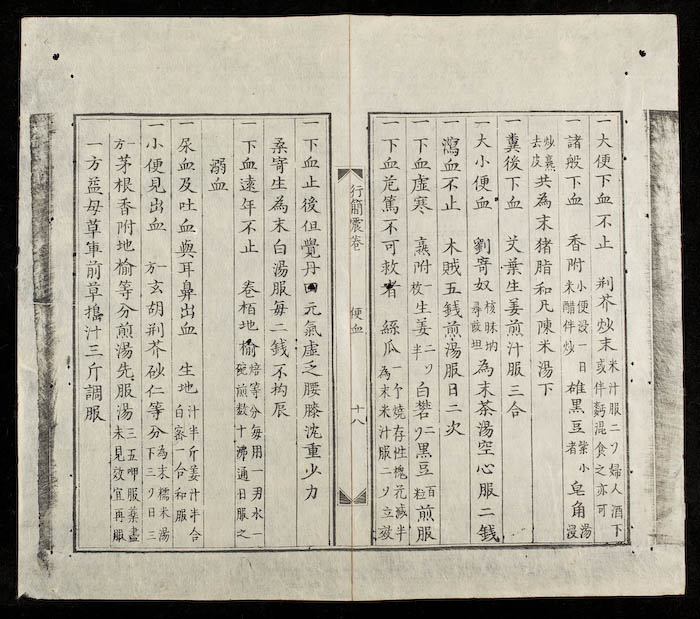 一大便下血不止 荆芥炒末 米汁服二ツ婦人酒下 或伴麪混食之亦可
一諸般下血 香附 小便浸一日 米醋伴炒 雄黑豆 紫小者 皂角 湯浸
炒裏去皮 共為末猪脂和凡陳米湯下
一糞後下血 艾葉生姜煎汁服三合
一大小便血 劉寄奴 為末茶湯空心服二錢
一瀉血不止 木賊五錢煎湯服日二次
一下血虛寒 附一枚 生姜半 二ツ 白礬二ツ黑豆百粒 煎服
一下血危篤不可救者 絲瓜 一个燒存性槐花減半 為末米汁服二ツ立效
行簡震卷 便血 十八
一下血止後但覺丹田元氣虛乏腰膝沈重少力
桑寄生為末白湯服每二錢不拘辰
一下血遠年不止 卷栢地榆 焙等分每用一男水一 碗煎數十沸通日服之
溺血
一尿血及吐血與耳鼻出血 生地 汁半斤姜汁半合 白蜜一合和服
一小便見出血 一方 玄胡荆芥砂仁等分 為末糯米湯 下三ツ日三
一方 茅根香附地榆等分煎湯先服湯 三五呷服藥盡 未見效宜再服
一方益母草車前草搗汁三斤調服